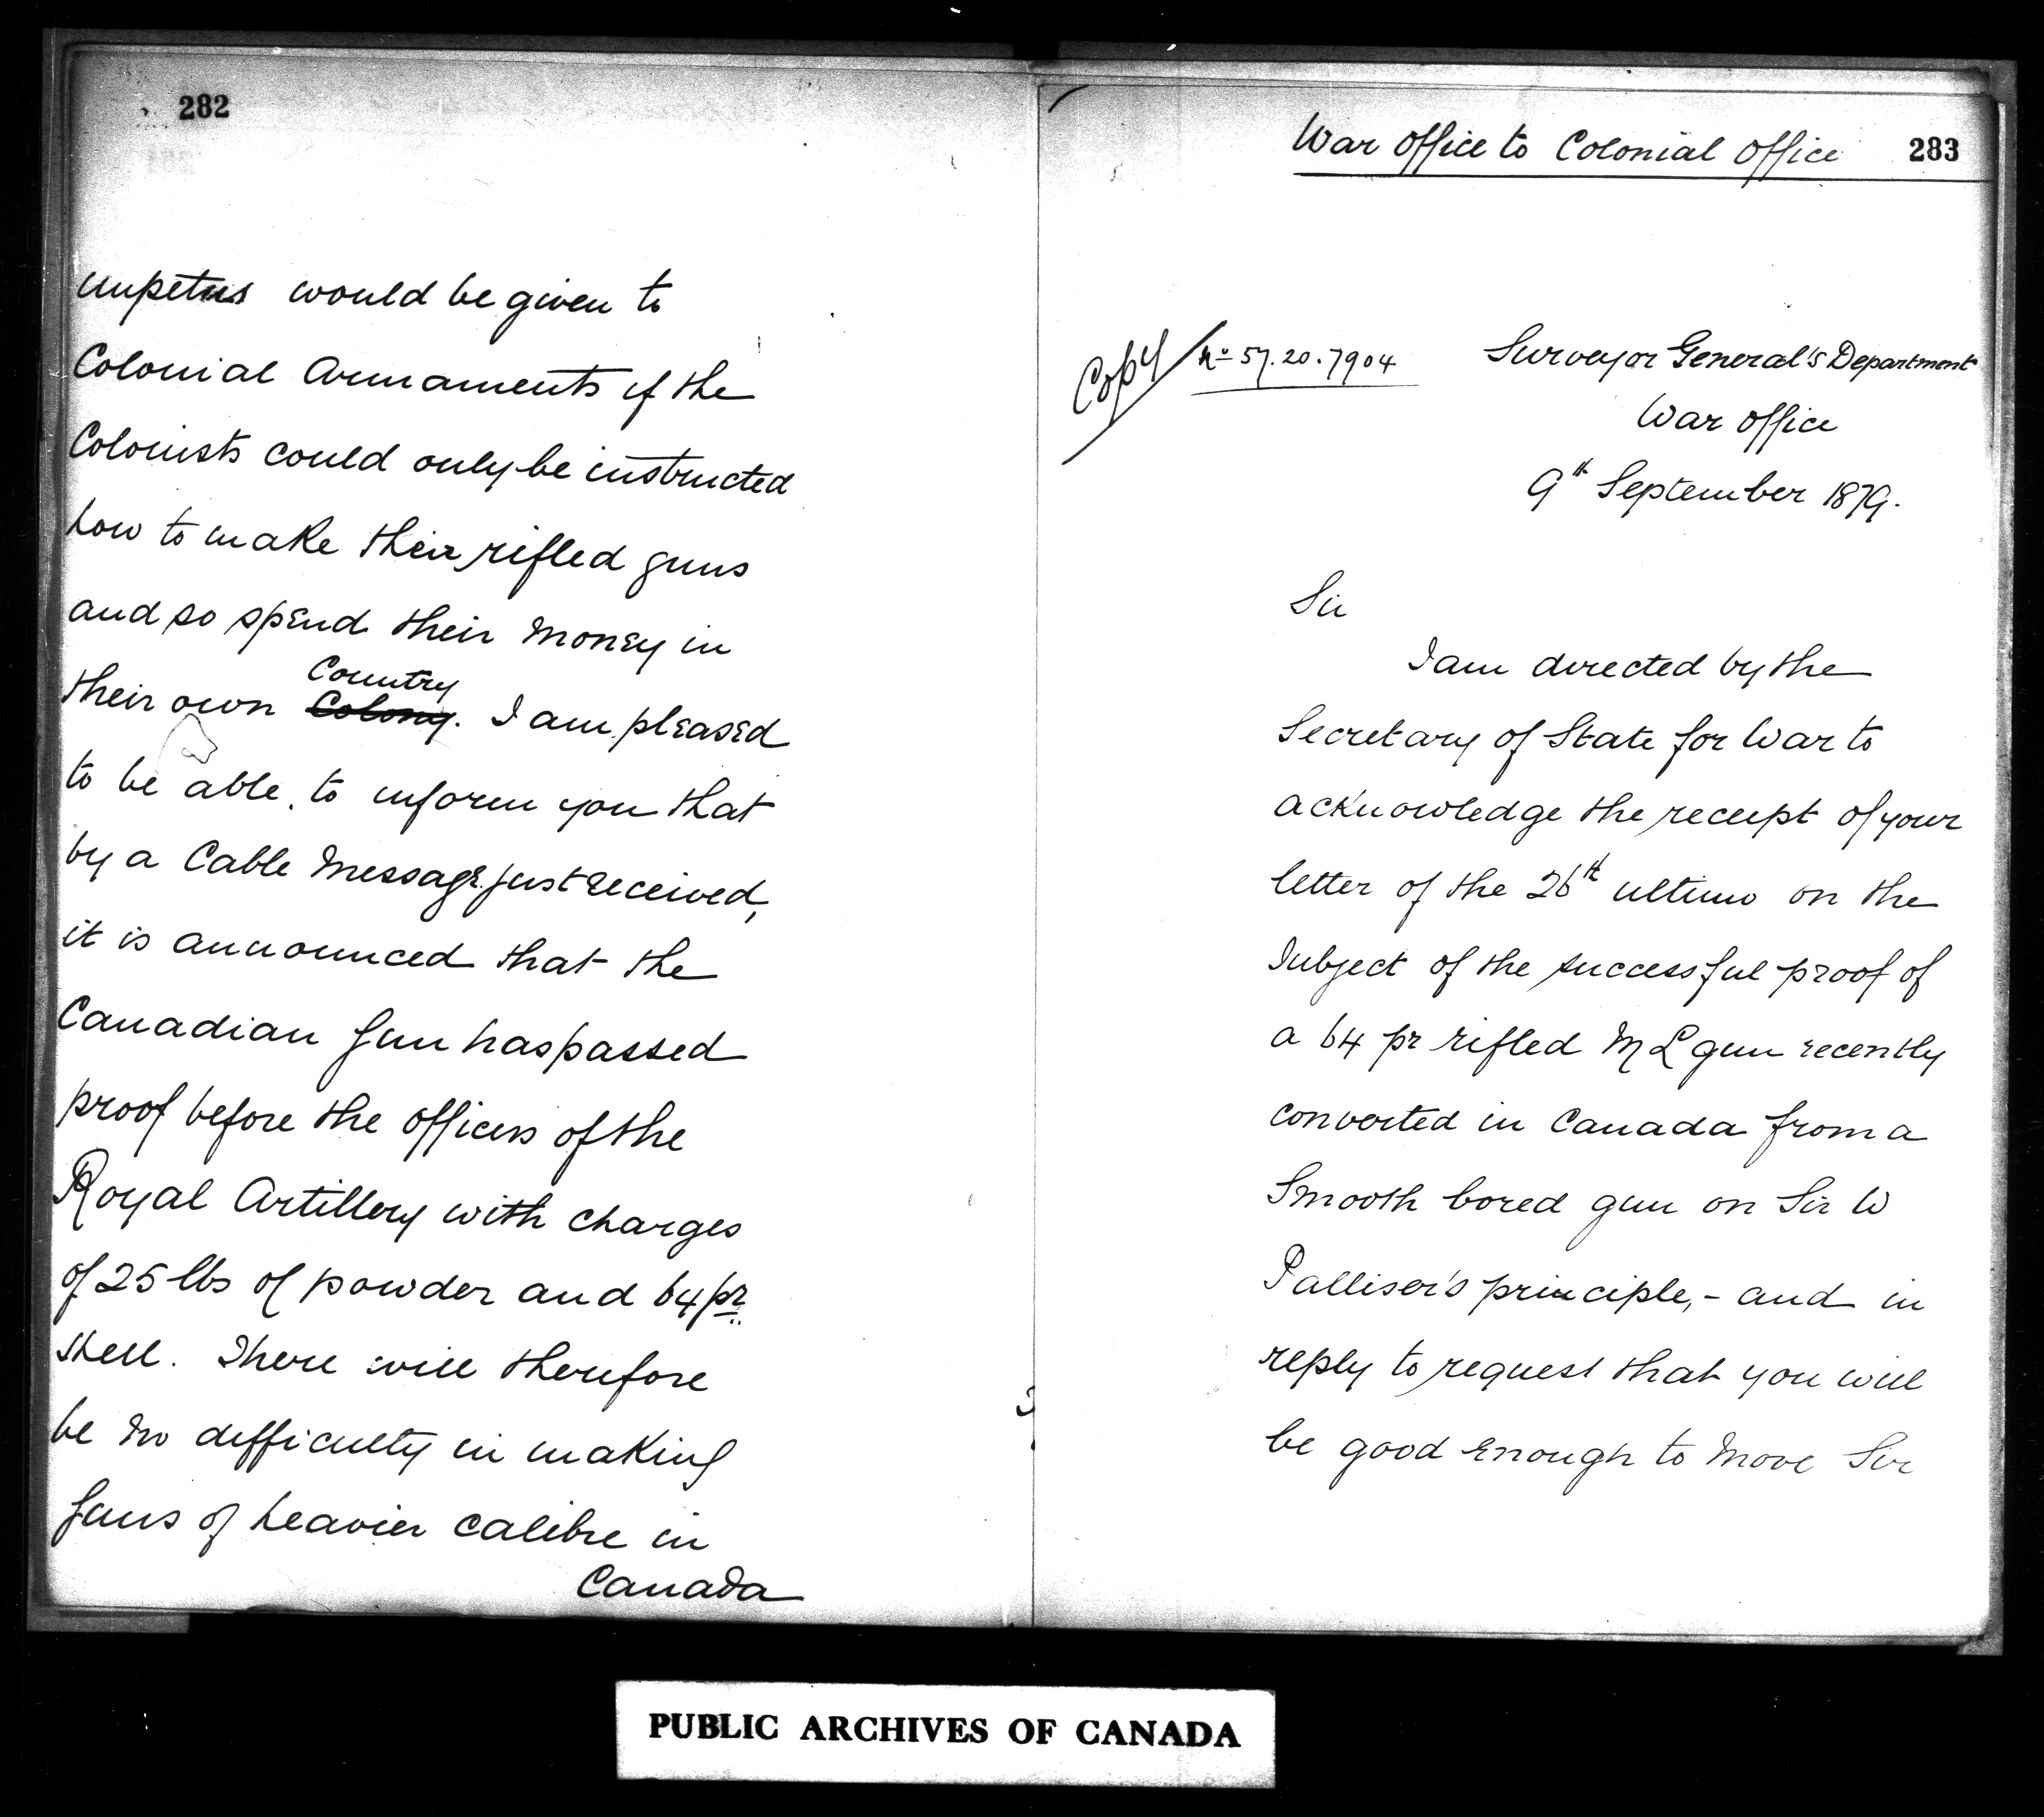 282
impetus would be given to
Colonial Armaments if the
Colonists could only be instructed
how to make their rifled guns
and so spend their money in
Country
their own Colony. I am pleased
to be able to inform you that
by a Cable Message just received,
it is announced that the
Canadian Gun has passed
proof before the officers of the
Royal Artillery with charges
of 25 lbs of powder and 64 pr
shell. There will therefore
be no difficulty in making
Guns of heavier calibre in
Canada
War Office to Colonial Office 283
Copy
No 57.20.7904 Surveyor General's Department
War Office
9th September 1879.
Sir
I am directed by the
Secretary of State for War to
acknowledge the receipt of your
letter of the 26th ultimo on the
Subject of the successful proof of
a 64 pr rifled M L gun recently
converted in Canada from a
Smooth bored gun on Sir W
Palliser's principle, - and in
reply to request that you will
be good enough to move Sir
PUBLIC ARCHIVES OF CANADA